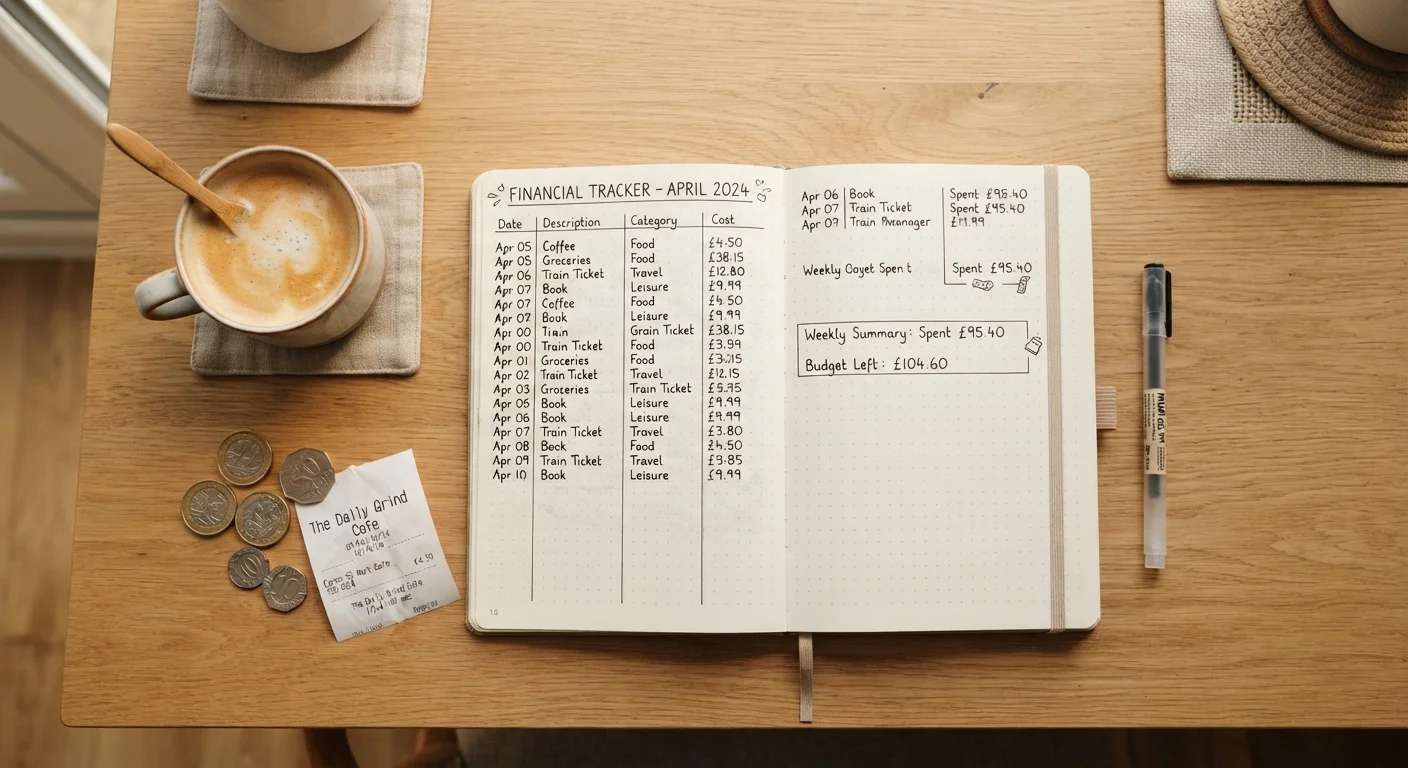 FINANCIAL TRACKER - APRIL 2024
Date Description Category Cost
Apr 05 Coffee Food £4.50
Apr 05 Groceries Food £38.15
Apr 06 Train Ticket Travel £12.80
Apr 07 Book Leisure £9.99
Apr 07 Coffee Food £4.50
Apr 07 Book Leisure £9.99
Apr 00 Train Grain Ticket £38.15
Apr 00 Train Ticket Food £3.99
Apr 01 Groceries Food
Apr 02 Train Ticket Travel £12.15
Apr 03 Groceries Train Ticket £5.75
Apr 05 Book Leisure £9.99
Apr 06 Book Leisure £9.99
Apr 07 Train Ticket Travel £3.80
Apr 08 Beck Food
Apr 09 Train Ticket Travel £3.85
Apr 10 Book Leisure £9.99
Apr 06 Book Spent £95.40
Apr 07 Train Ticket Spent £45.40
Apr Train
Weekly Spent Spent £95.40
Weekly Summary: Spent £95.40
Budget Left: £104.60
The Daily Grind
Cafe